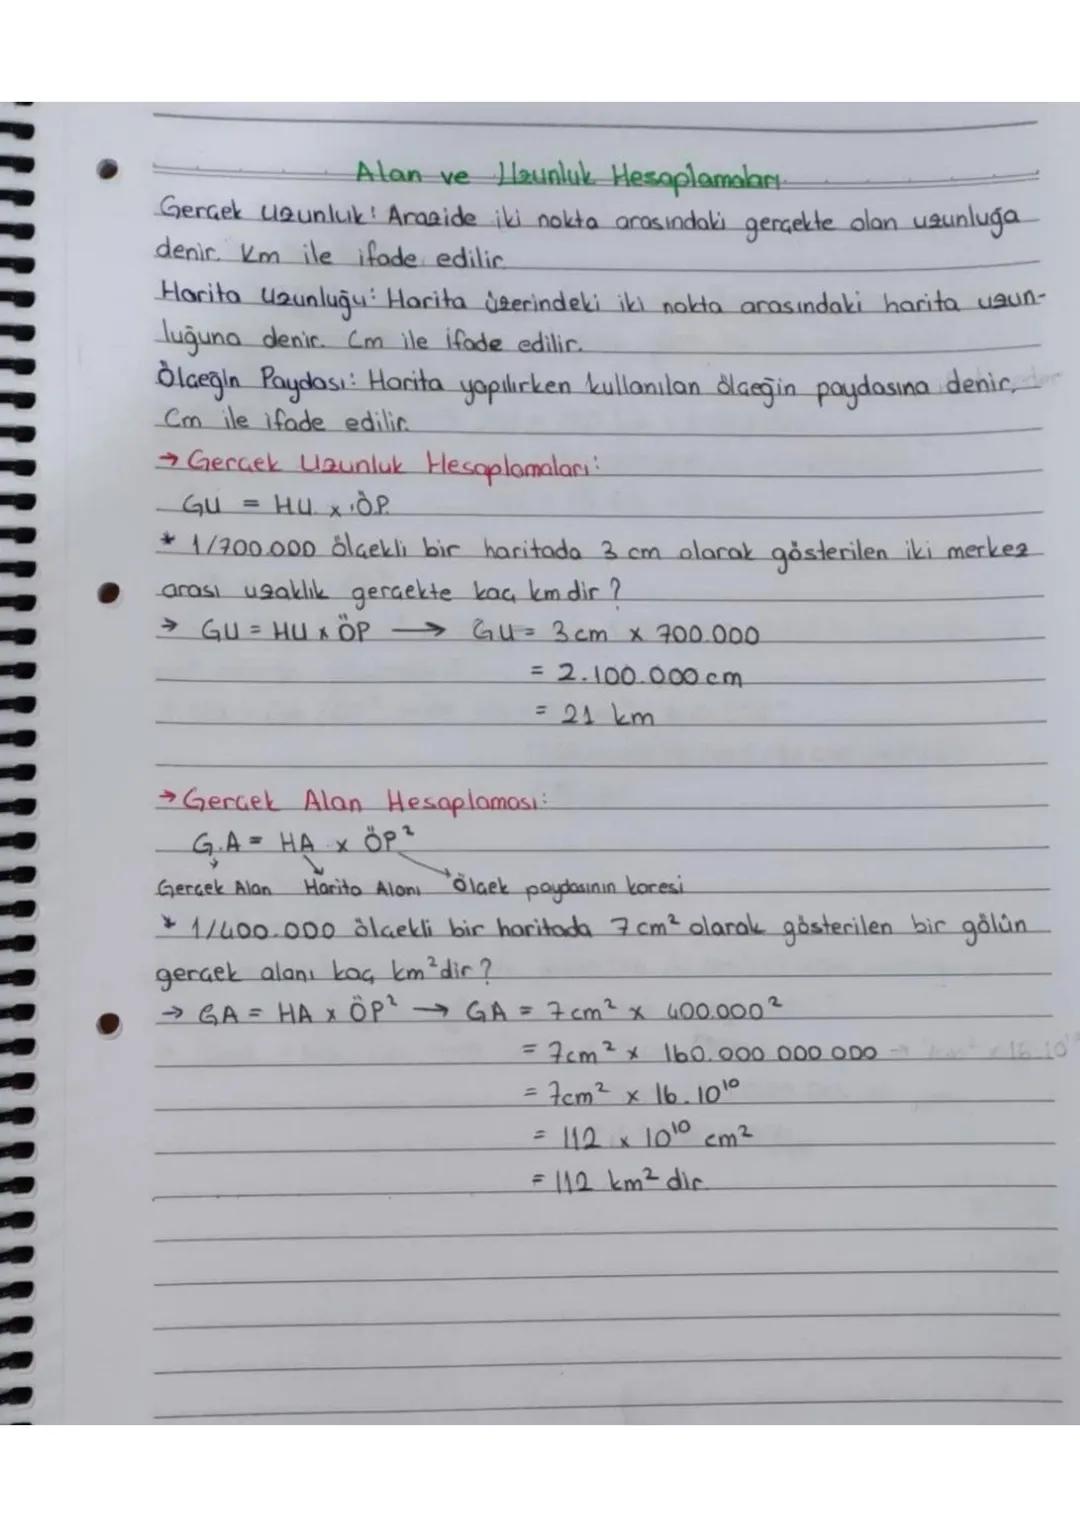 Alan ve Uzunluk Hesaplamaları
Gerçek Uzunluk: Arazide iki nokta arasındaki gerçekte olan uzunluğa
denir. Km ile ifade edilir.
Harita Uzunluğu: Harita üzerindeki iki nokta arasındaki harita uzun-
luğuna denir. Cm ile ifade edilir.
Ölçeğin Paydası: Harita yapılırken kullanılan ölçeğin paydasına denir.
Cm ile ifade edilir.
→ Gerçek Uzunluk Hesaplamaları:
GU = HU x ÖP
* 1/700.000 ölçekli bir haritada 3 cm olarak gösterilen iki merkez
arası uzaklık gerçekte kaç km dir?
→ GU = HU x ÖP → GU = 3 cm x 700.000
= 2.100.000 cm
= 21 km
→ Gerçek Alan Hesaplaması:
G.A = HA x ÖP²
Gerçek Alan Harita Alanı Ölçek paydasının karesi
* 1/400.000 ölçekli bir haritada 7 cm² olarak gösterilen bir gölün
gerçek alanı kaç km² dir?
→ GA = HA x ÖP² → GA = 7 cm² x 400.000²
= 7cm² x 160.000.000.000
= 7cm² x 16.10¹⁰
= 112 x 10¹⁰ cm²
= 112 km² dir.